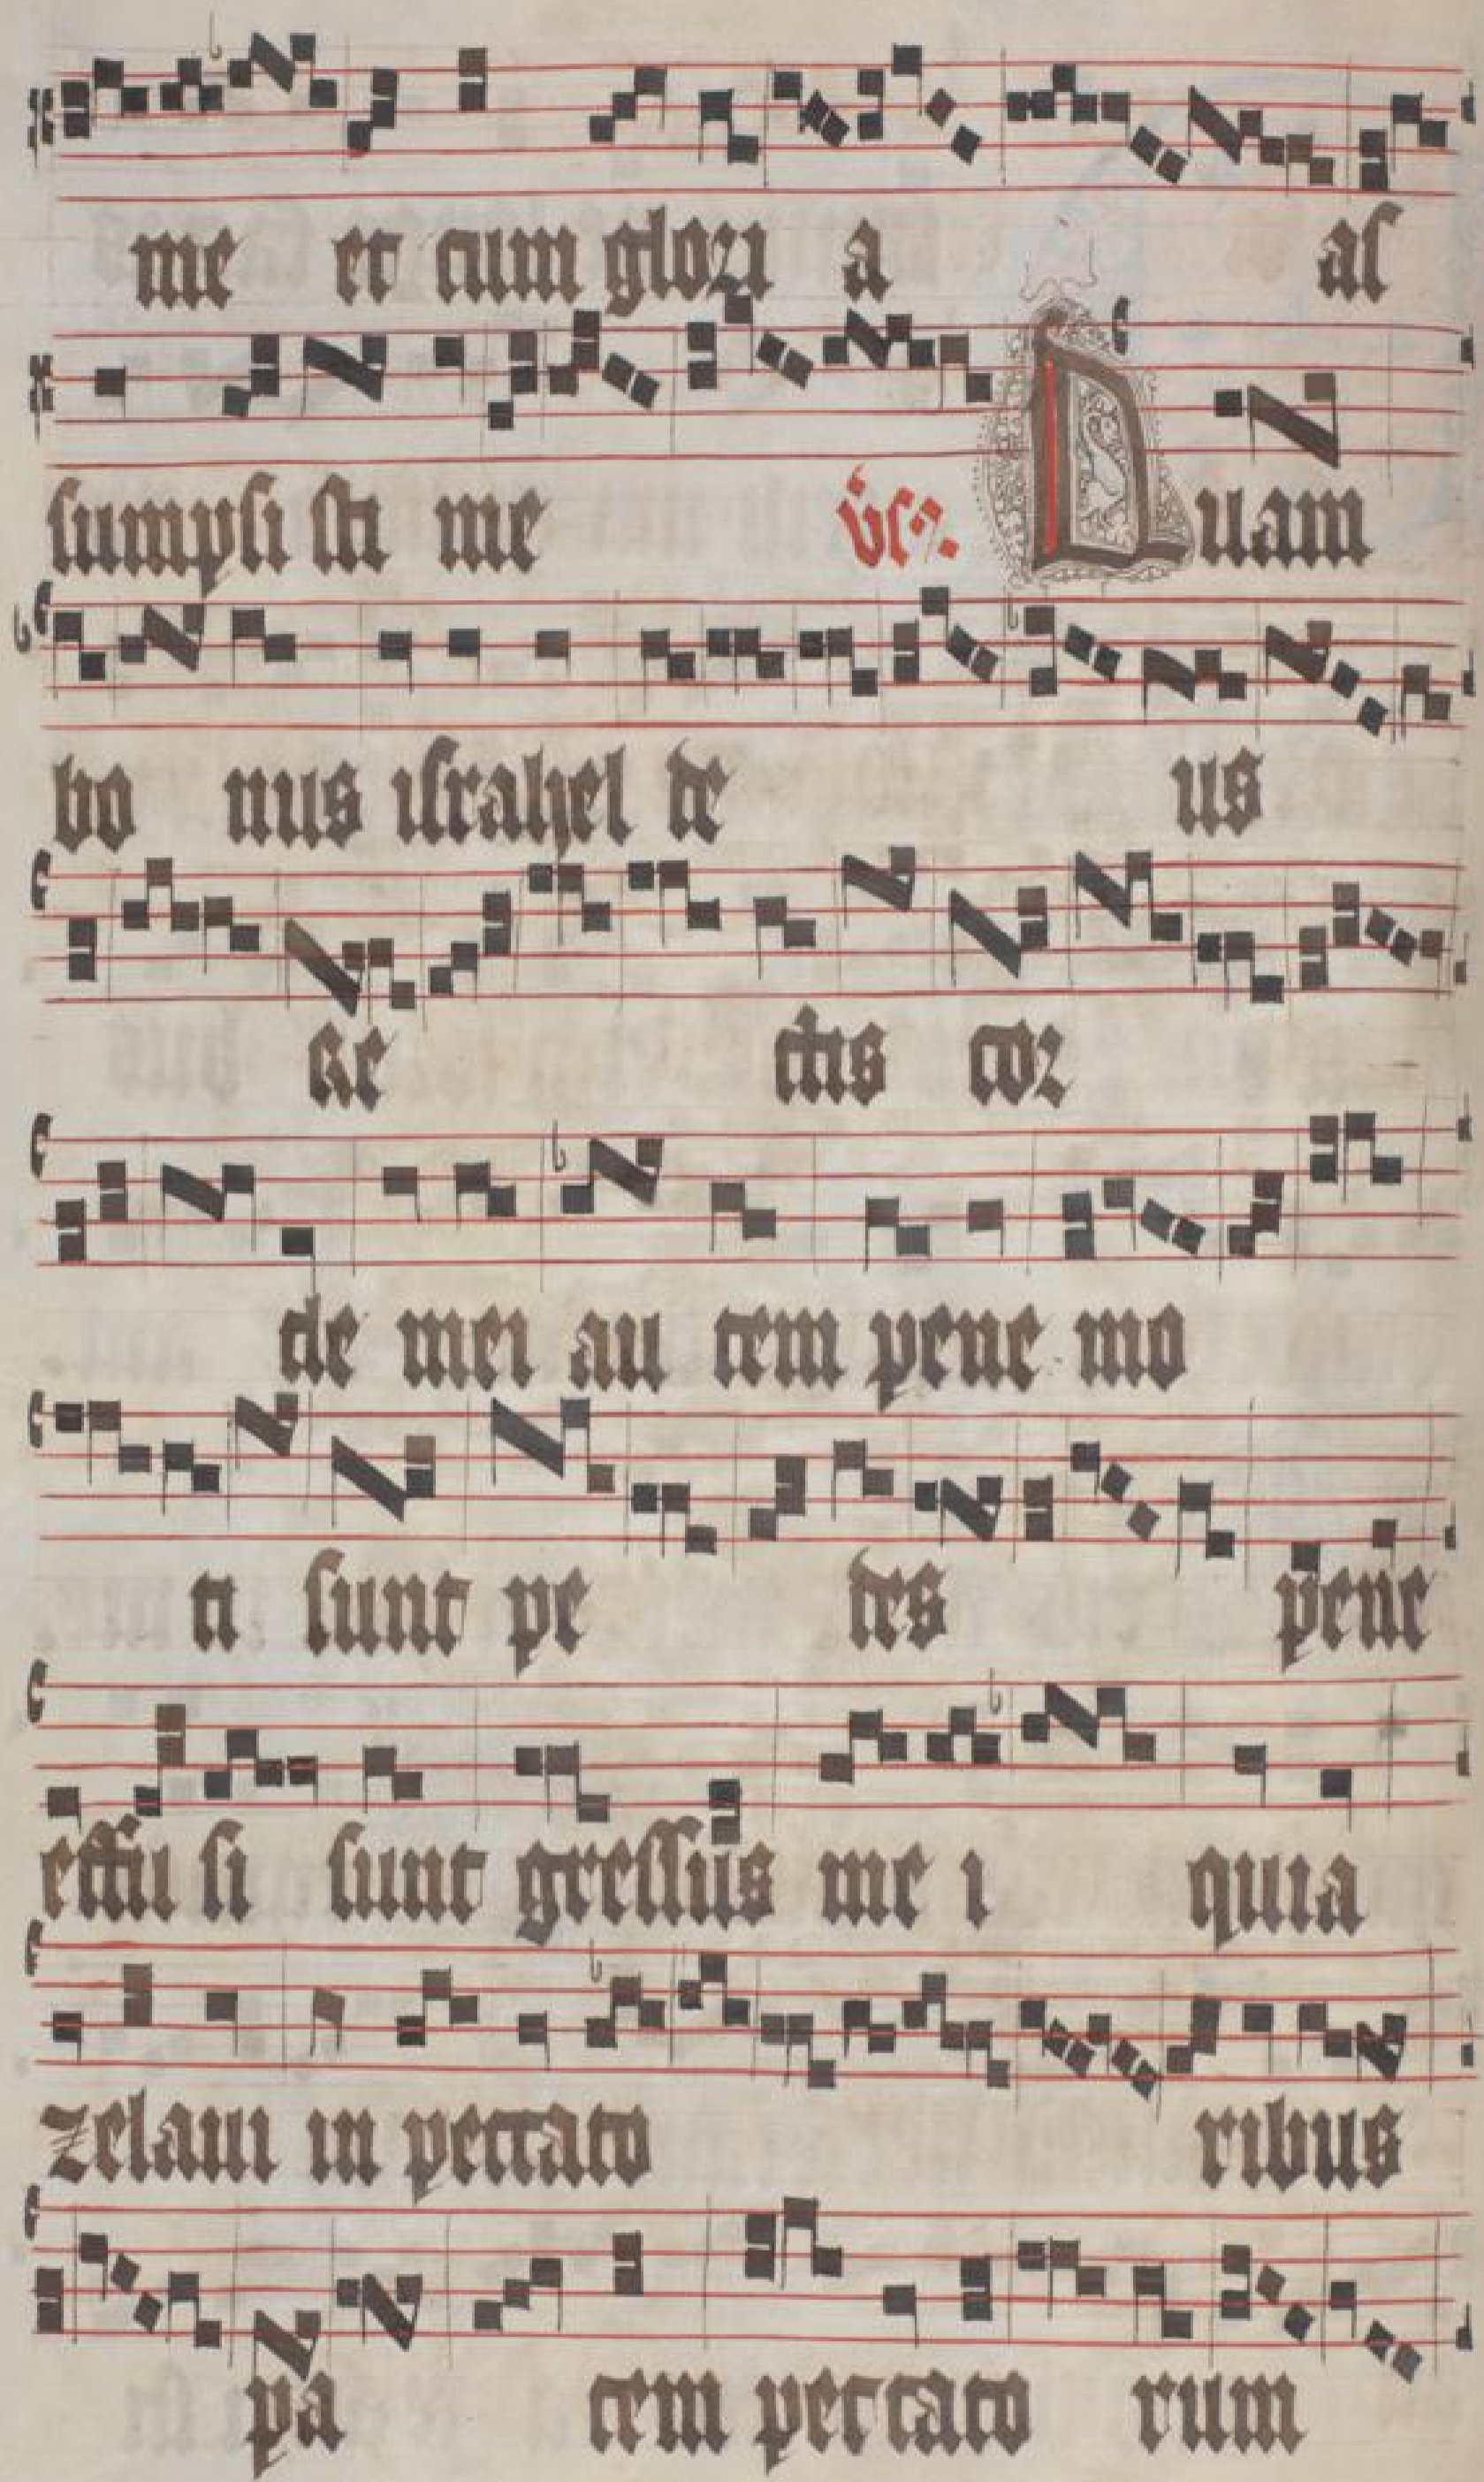 me et cum glori a aſ
ſumpſi ſti me Quam
bo nus iſrahel de us
Re ctis cor
de mei au tem pene mo
ti ſunt pe des pene
effu ſi ſunt greſſus me i quia
zelaui in peccato ribus
pa cem peccato rum